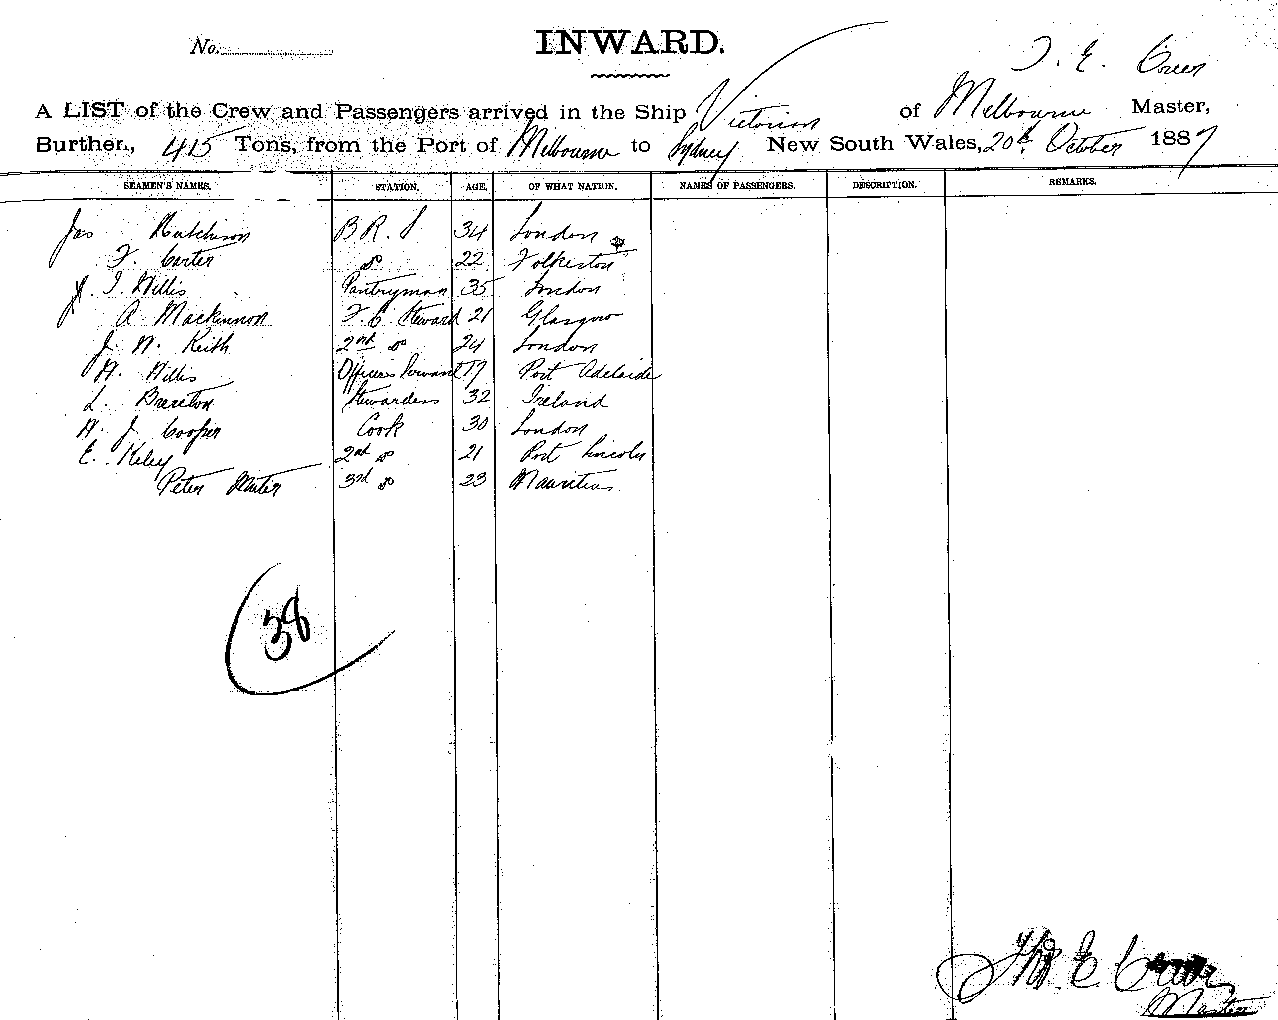 No.
INWARD.
T. E. Creer
A LIST of the Crew and Passengers arrived in the Ship Victorian of Melbourne Master,
Burthen, 415 Tons, from the Port of Melbourne to Sydney New South Wales, 20th October 1887
SEAMEN'S NAMES. STATION. AGE. OF WHAT NATION. NAMES OF PASSENGERS. DESCRIPTION. REMARKS.
Jas Hutchison B R. S 34 London
F. Carter do 22 Folkeston
J. T. Willis Pantryman 35 London
A Mackinnon F. C. Steward 21 Glasgow
J. W. Keith 2nd do 24 London
W. Willis Officers Servant 17 Port Adelaide
L. Brereton Stewardess 32 Ireland
W. J. Cooper Cook 30 London
E. Keley 2nd do 21 Port Lincoln
Peter 3rd do 23 Mauritius
38
Thos. E. Creer
Master